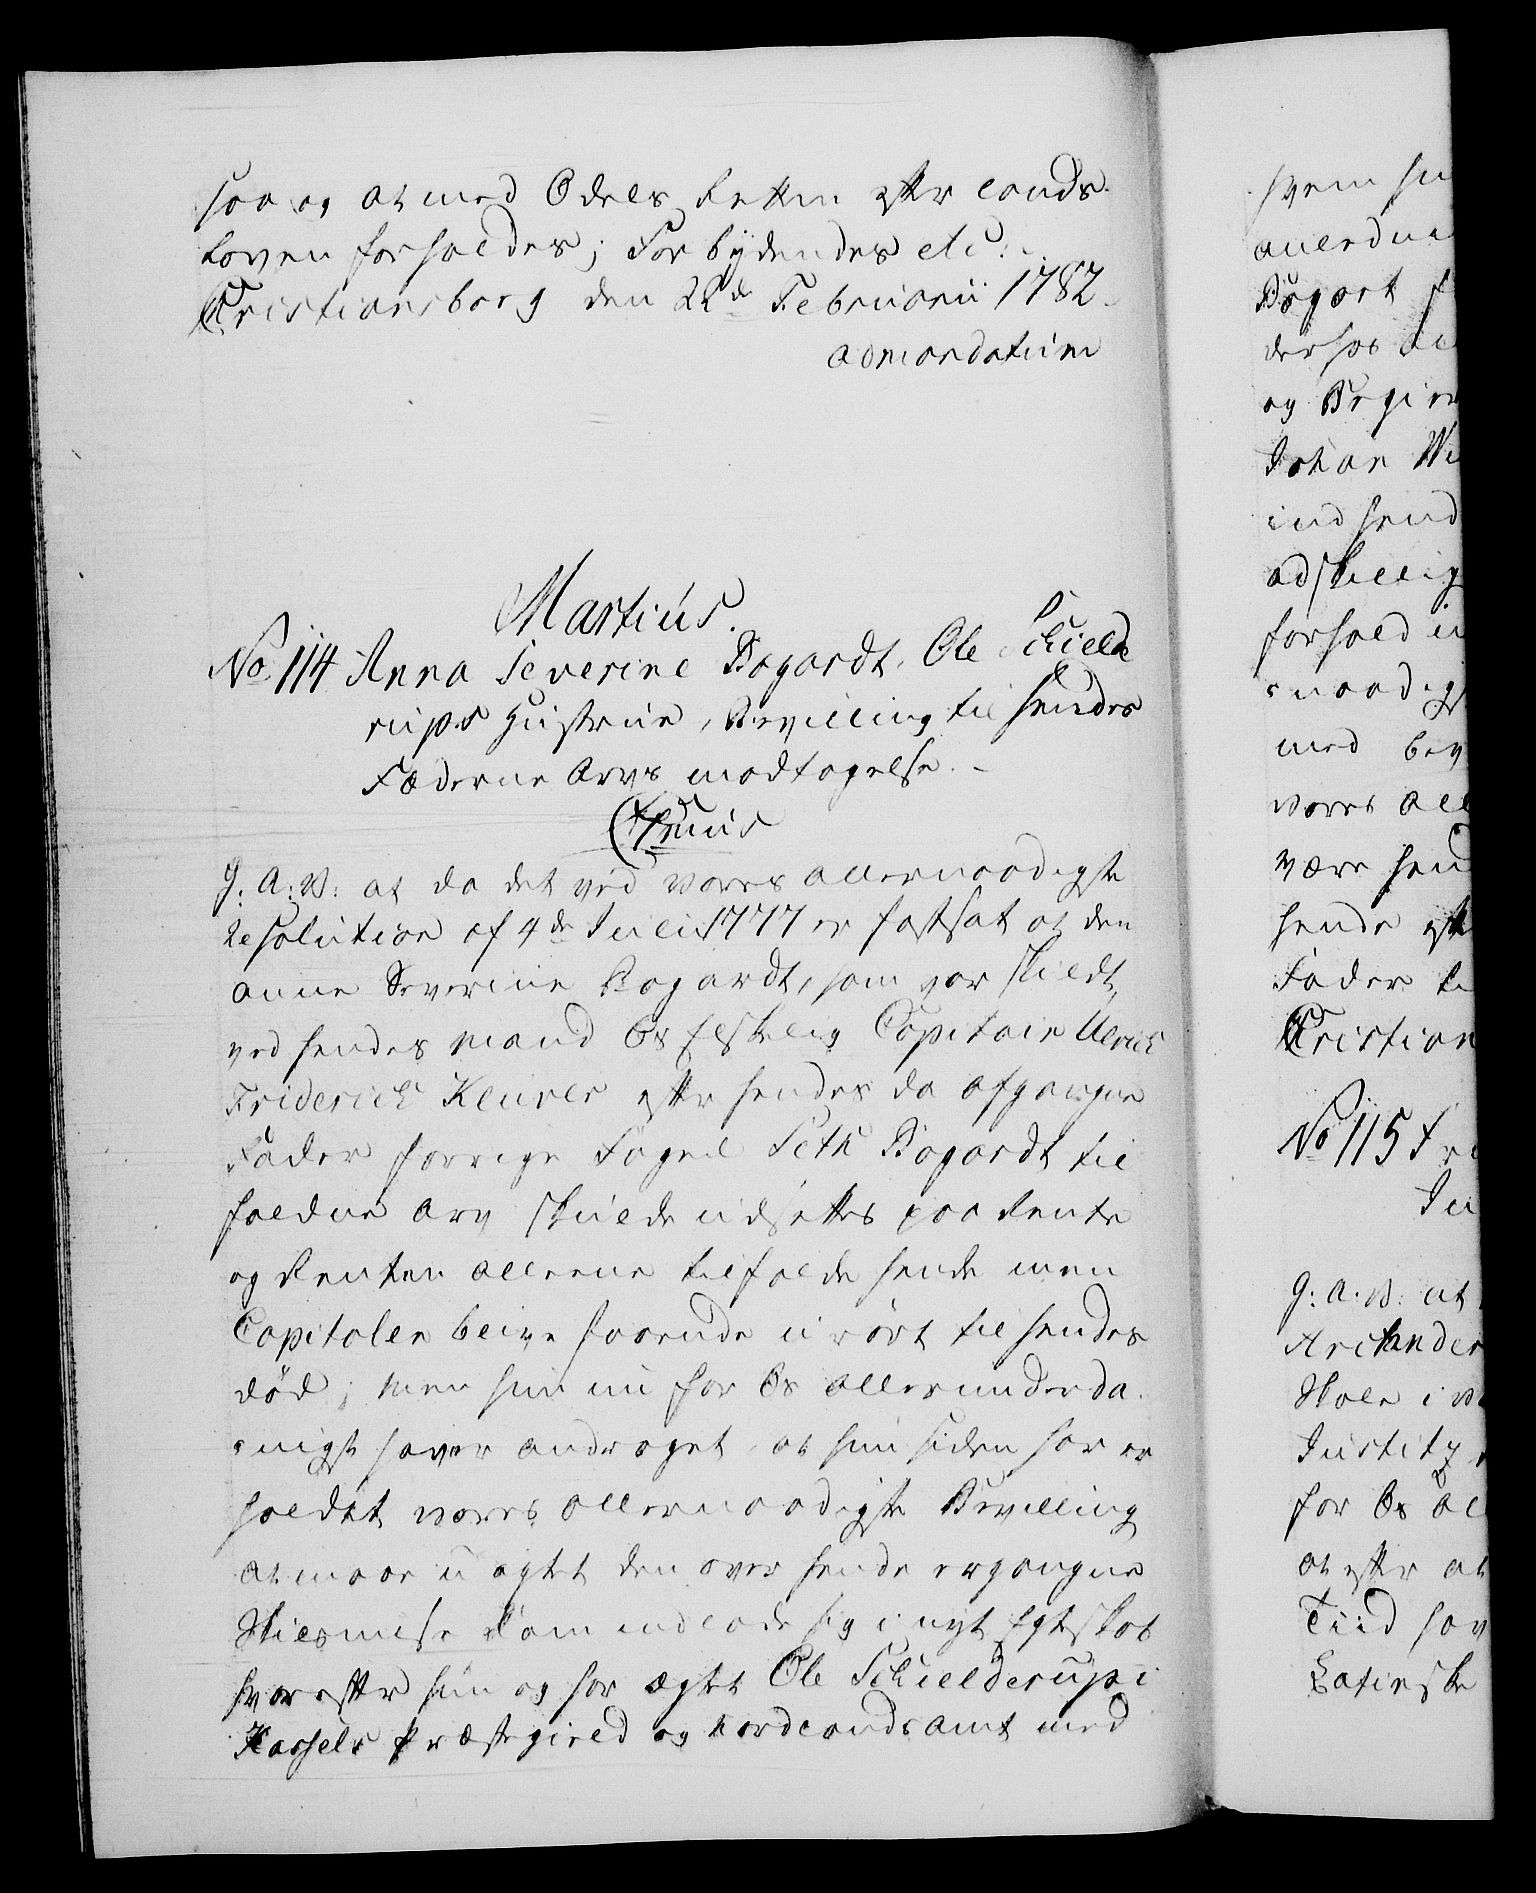 saa og at med Odels Retten efter Lands
Loven forholdes; Forbydendes etc:
Cristiansborg den 22de Februarii 1782.
admandatum
Martius.
No 114 Anna Severine Bogardt, Ole Schield
rups Hustrue, Bevilling til hendes
Fæderne Arvs modtagelse. -
G: A: V: at da det ved vores allernaadigste
Resolution af 4de Julii 1777 er fastsat at den
Anne Severine Bogardt, som var skildt
ved hendes Mand Os Elskelig Capitain Ulrich
Friderich efter hendes da afgangne
Fader forrige Foged Seth Bogardt til
faldne Arv skulde udsettes paa Rente
og Renten alleene tilfalde hende men
Capitalen blive staaende urørt til hendes
død; Men hun nu for Os allerunderda
nigst haver andraget at hun siden har er
holdet vores allernaadigste Bevilling
at maae uagtet den over hende ergangne
Skilsmisse Dom indlade sig i nyt Egteskab
hvorefter hun og har ægtet Ole Schielderup i
Præstegield og Nordlands Amt med
hvem hu
anledni
Bogart
derhos
og Begier
Johan
indsend
adskillig
forhold
naadigs
med bev
vores all
være hend
hende eft
Fader
Cristian
No 115
G: A: V: at
Skole i
Justitz
for Os al
at efter at
Tiid hav
Latinske